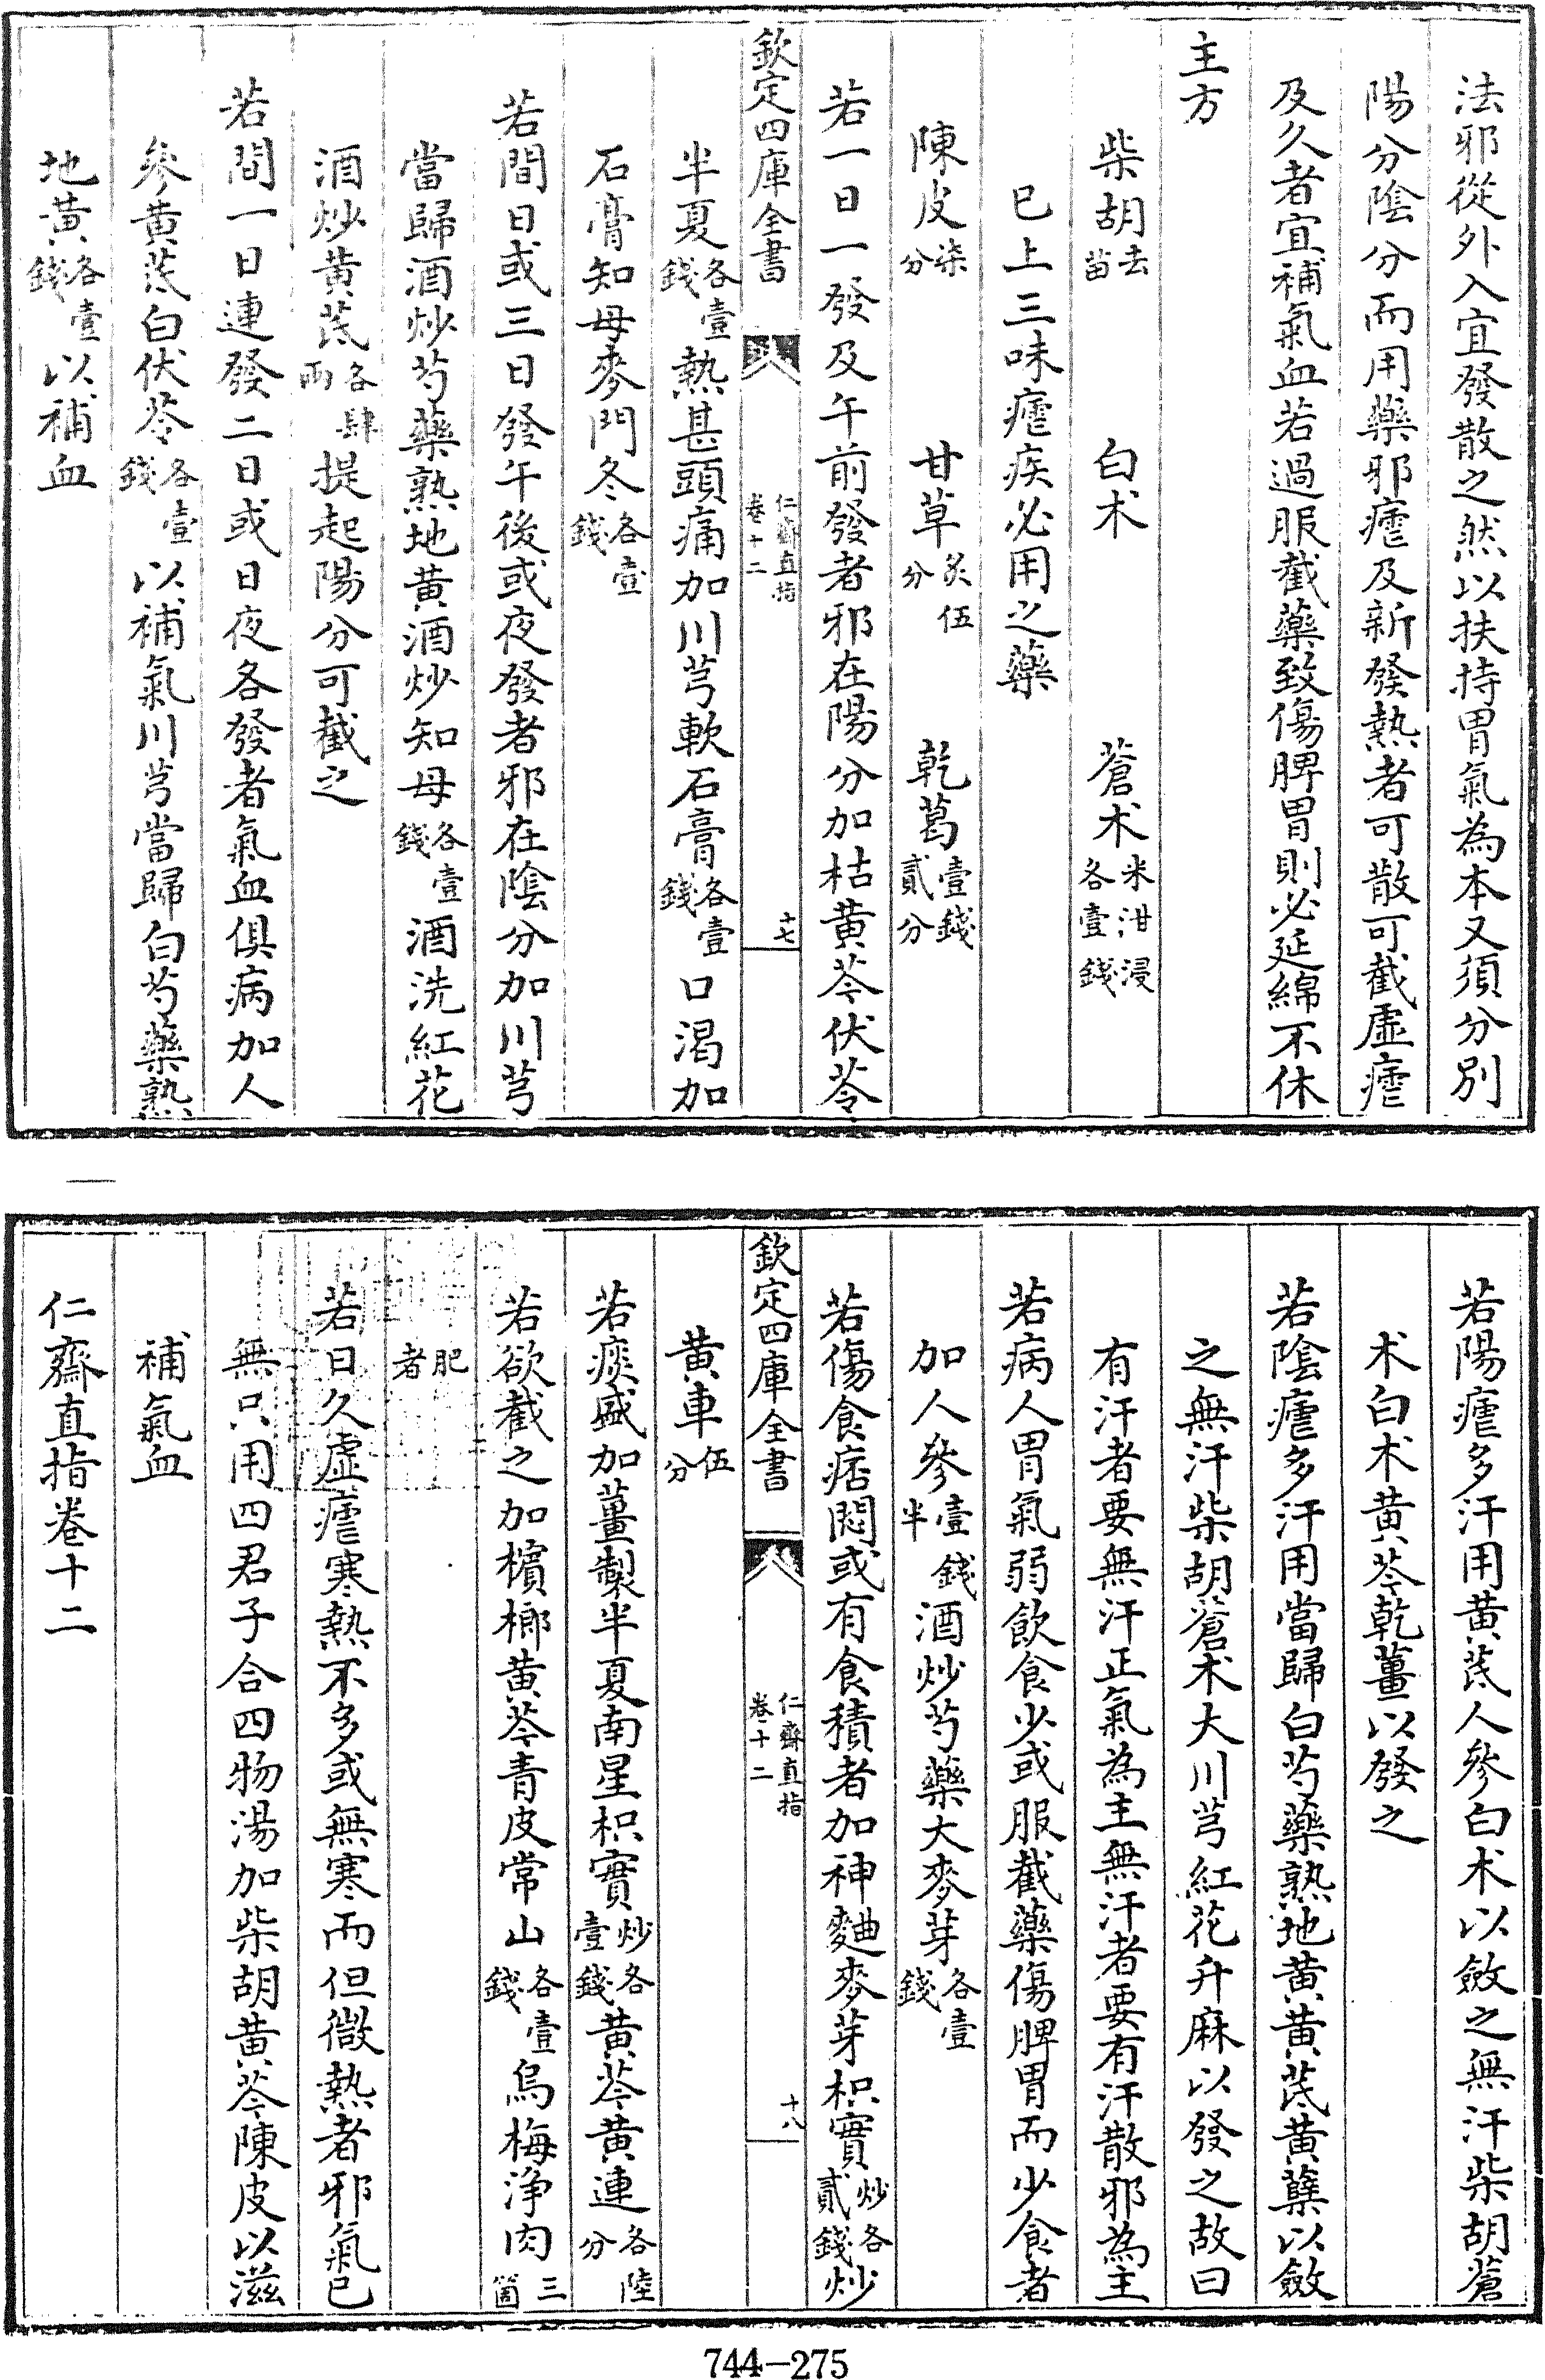 法邪從外入宜發散之然以扶持胃氣為本又須分別
陽分陰分而用藥邪瘧及新發熱者可散可截虛瘧
及久者宜補氣血若過服截藥致傷脾胃則必延綿不休
主方
柴胡去苗 白术 蒼术米泔浸各壹錢
已上三味瘧疾必用之藥
陳皮柒分 甘草炙伍分 乾葛壹錢貳分
若一日一發及午前發者邪在陽分加枯黄芩伏苓
欽定四庫全書 仁齋直指卷十二 十七
半夏各壹錢熱甚頭痛加川芎軟石膏各壹錢口渴加
石膏知母麥門冬各壹錢
若間日或三日發午後或夜發者邪在陰分加川芎
當歸酒炒芍藥熟地黄酒炒知母各壹錢酒洗紅花
酒炒黄芪各肆兩提起陽分可截之
若間一日連發二日或日夜各發者氣血俱病加人
參黄芪白伏苓各壹錢以補氣川芎當歸白芍藥熟
地黄各壹錢以補血
若陽瘧多汗用黄芪人參白术以斂之無汗柴胡蒼
术白术黄芩乾薑以發之
若陰瘧多汗用當歸白芍藥熟地黄黄芪黄蘗以斂
之無汗柴胡蒼术大川芎紅花升麻以發之故曰
有汗者要無汗正氣為主無汗者要有汗散邪為主
若病人胃氣弱飲食少或服截藥傷脾胃而少食者
加人參壹錢半酒炒芍藥大麥芽各壹錢
若傷食痞悶或有食積者加神麯麥芽枳實炒各貳錢炒
欽定四庫全書 仁齋直指卷十二 十八
黄車伍分
若痰盛加薑製半夏南星枳實炒各壹錢黄芩黄連各陸分
若欲截之加檳榔黄芩青皮常山各壹錢烏梅净肉三箇
肥者
若日久虛瘧寒熱不多或無寒而但微熱者邪氣已
無只用四君子合四物湯加柴胡黄芩陳皮以滋
補氣血
仁齋直指卷十二
744-275